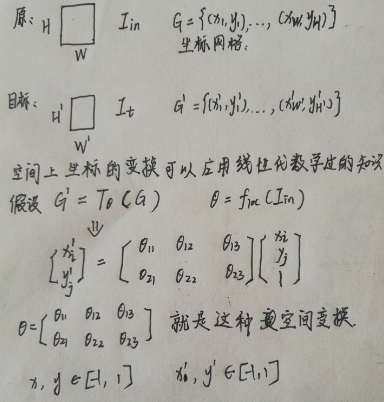 原: H W I_in G = {(x_1, y_1), ..., (x_W, y_H)}
坐标网格.
目标: H' W' I_t G' = {(x'_1, y'_1), ..., (x'_W', y'_H')}
空间上坐标的变换可以应用线性代数学过的知识
假设 G' = T_θ (G) θ = f_loc (I_in)
⇓
[x'_i y'_j] = [θ_11 θ_12 θ_13 θ_21 θ_22 θ_23] [x_i y_j 1]
θ = [θ_11 θ_12 θ_13 θ_21 θ_22 θ_23] 就是这种空间变换.
x, y ∈ [-1, 1] x', y' ∈ [-1, 1]